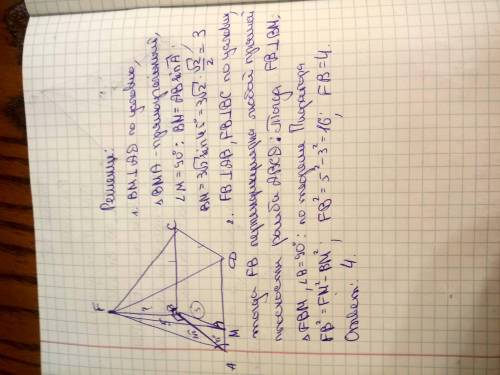 Решение:
1. BM⊥AD по условию,
△BMA - прямоугольный,
∠M=90°: BM=AB sin A;
BM=3√2 sin 45°=3√2·√2/2=3
2. FB⊥AB, FB⊥BC по условию,
тогда FB перпендикулярна любой прямой
плоскости ромба ABCD: Тогда FB⊥BM,
△FBM, ∠B=90°: по теореме Пифагора
FB²=FM²-BM²; FB²=5²-3²=16; FB=4.
Ответ: 4.
F
C
B
D
M
A
5
3
45°